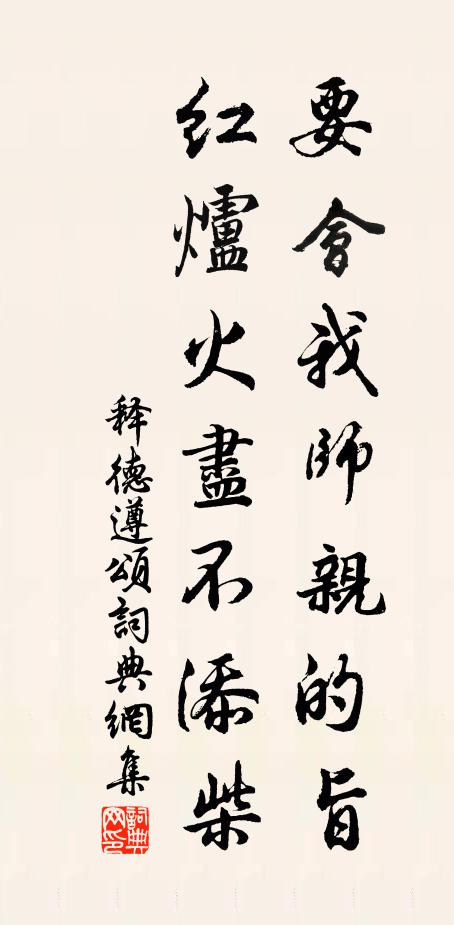 要會我師親的旨
紅爐火盡不添柴
释德遵頌詞典網集
詞典网印